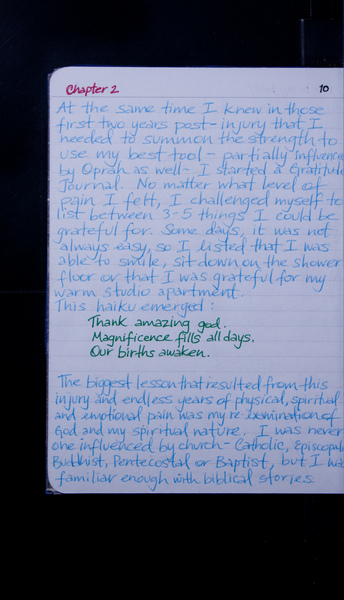 Chapter 2 10
At the same time I knew in those
first two years post-injury that I
needed to summon the strength to
use my best tool - partially influence
by Oprah as well - I started a Gratitude
Journal. No matter what level of
pain I felt, I challenged myself to
list between 3-5 things I could be
grateful for. Some days, it was not
always easy, so I listed that I was
able to smile, sit down on the shower
floor or that I was grateful for my
warm studio apartment.
This haiku emerged:
Thank amazing god.
Magnificence fills all days.
Our births awaken.
The biggest lesson that resulted from this
injury and endless years of physical, spiritual
and emotional pain was my re-examination of
God and my spiritual nature. I was never
one influenced by church - Catholic, Episcopal
Buddhist, Pentecostal or Baptist, but I was
familiar enough with biblical stories.